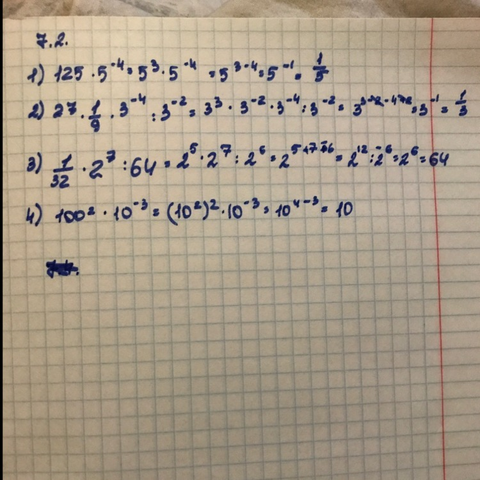 7.2.
1) 125 · 5⁻⁴ = 5³ · 5⁻⁴ = 5³⁻⁴ = 5⁻¹ = 1/5
2) 27 · 1/9 · 3⁻⁴ : 3⁻² = 3³ · 3⁻² · 3⁻⁴ : 3⁻² = 3³⁺⁻²⁻⁴⁺² = 3⁻¹ = 1/3
3) 1/32 · 2⁷ : 64 = 2⁵ · 2⁷ : 2⁶ = 2⁵⁺⁷⁻⁶ = 2¹² : 2⁻⁶ = 2⁶ = 64
4) 100² · 10⁻³ = (10²)² · 10⁻³ = 10⁴⁻³ = 10